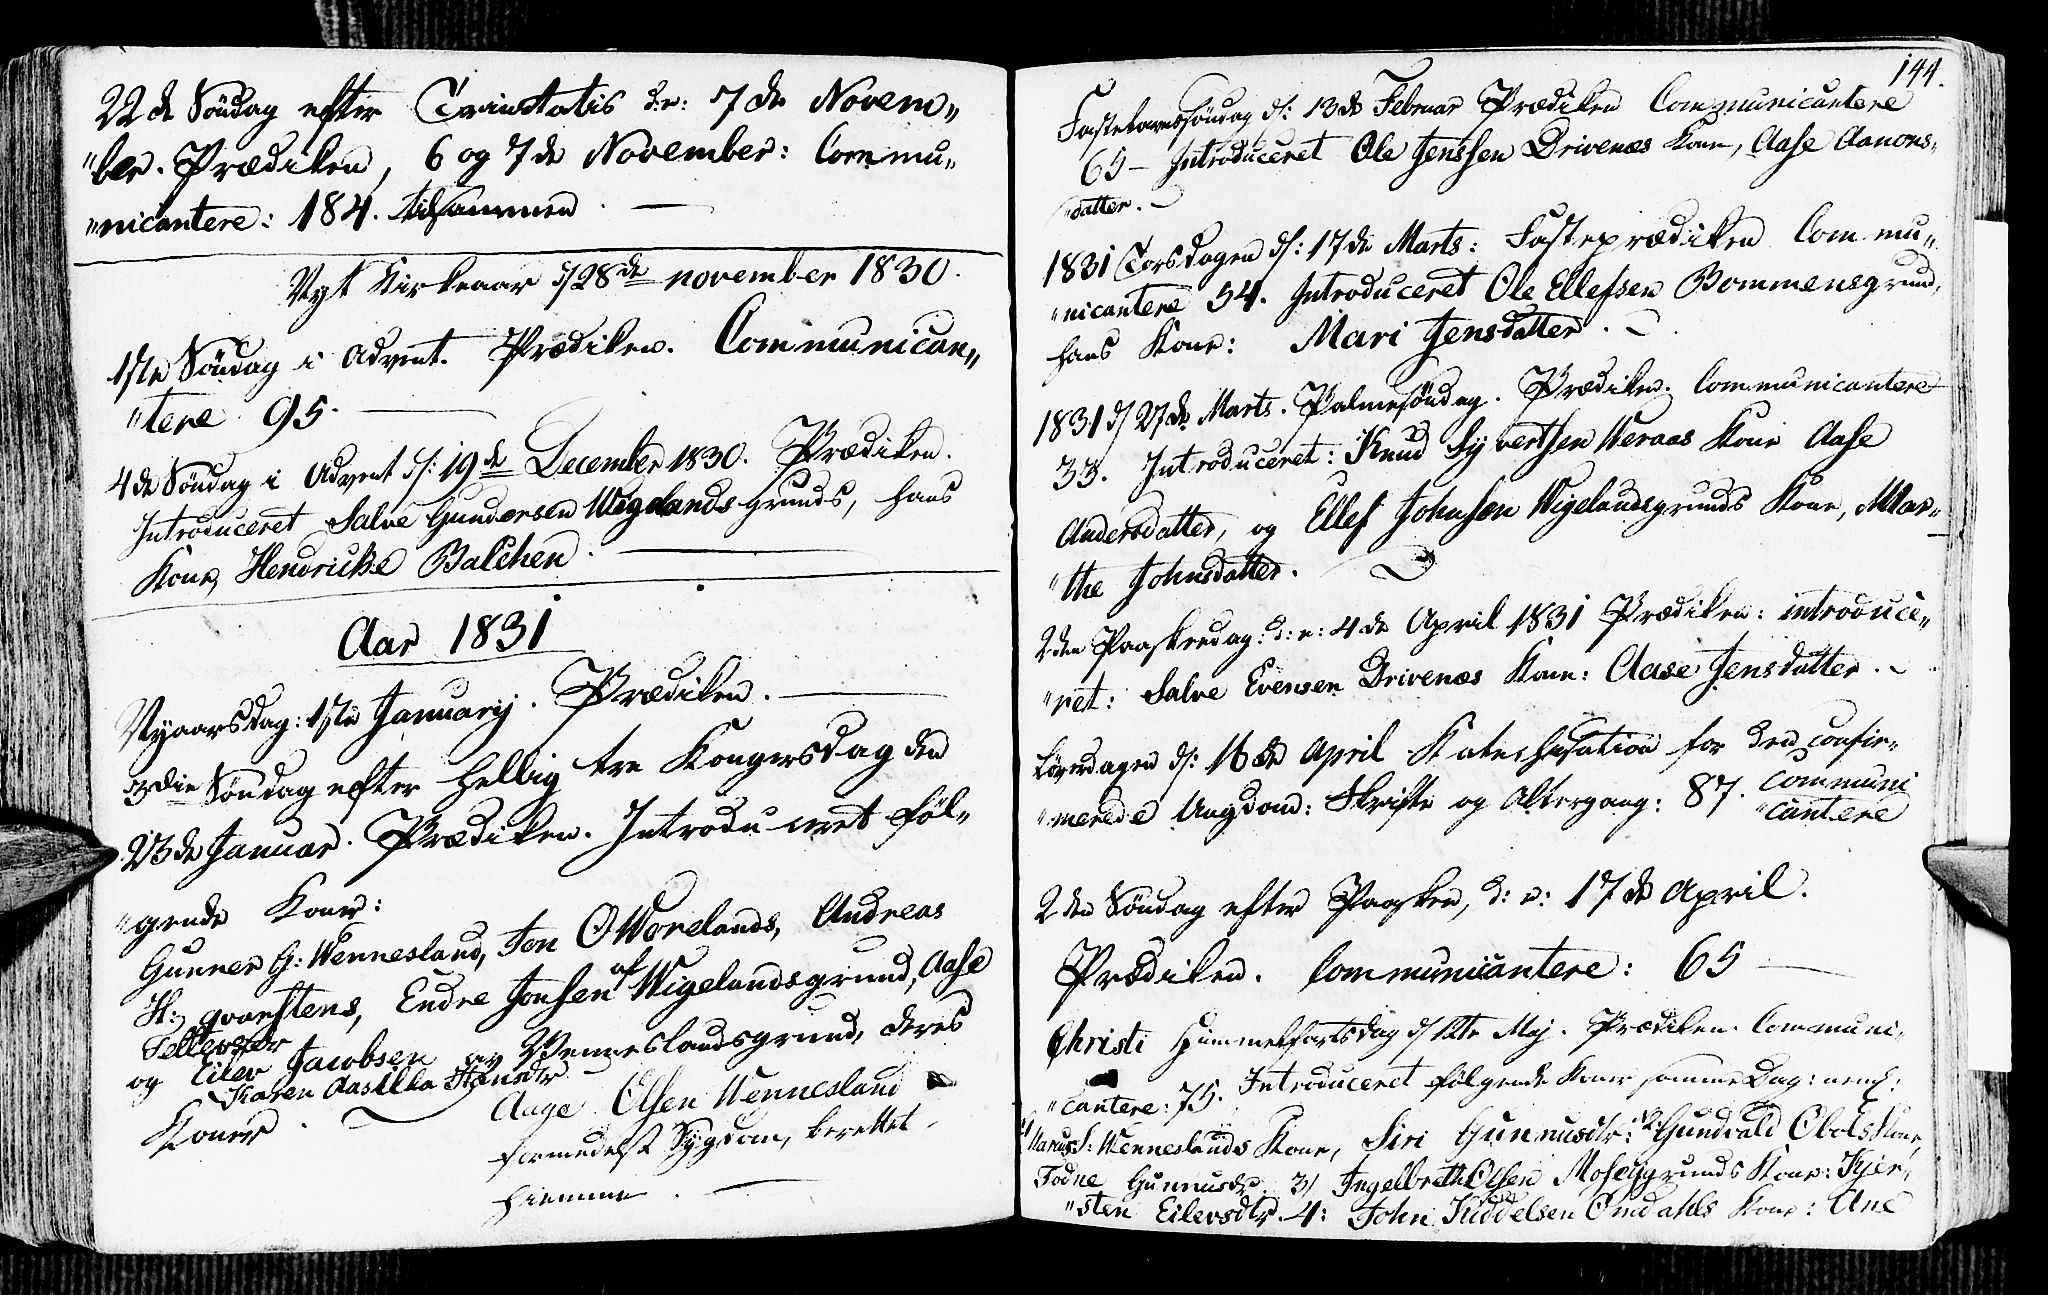 22de Söndag efter Trinitatis d.e: 7de Novem„
„ber. Prædiken, 6 og 7de November: Commu„
„nicantere: 184. tilsammen. —
Nyt Kirkeaar d/28de november 1830.
1ste Söndag i Advent. Prædiken. Communican„
„tere 95. —
4de Söndag i Advent d/: 19de December 1830. Prædiken.
Introduceret Salve Gundersen Wigelandsgrunds, hans
Kone, Hendricke Balchen. —
Aar 1831
Nyaarsdag: 1ste Januarij. Prædiken. —
3die Söndag efter Hellig tre Kongersdag den
23de Januar. Prædiken. Introduceret föl„
„gende Koner:
Gunner G: Wennesland, Jon O Worelands, Andreas
H: qvarstens, Endre Jonsen af Wigelandsgrund, Aase
Tellevsdr
og Eilev Jacobsen av Wenneslandsgrund, deres
Karen Aasille Hansdtr
Koner.
Aage Olsen Wennesland
formedelst Sygdom, berettet
hiemme. —
144.
Fastelavnssöndag d/: 13de Februar Prædiken Communicantere
65 — Introduceret Ole Jenssen Drivenæs Kone, Aase Aanons„
„datter. —
1831 Torsdagen d/: 17de Marts: Fasteprædiken Commu„
„nicantere 54. Introduceret Ole Ellefsen Bommensgrund,
hans Kone: Mari Jensdatter. —
1831 d/27de Marts. Palmesöndag. Prædiken. Communicantere
33. Introduceret: Knud Syvertsen Keraas Kone Aase
Andersdatter, og Ellef Johnsen Wigelandsgrunds Kone, Mar„
„the Johnsdatter.
2den Paaskedag: d: e: 4de April 1831 Prædiken: introduce„
„ret: Salve Evensen Drivenæs Kone: Aase Jensdatter. —
Löverdagen d/: 16de April Katechesation for den confir„
„merede Ungdom: Skrifte og Altergang: 87. Communi
„cantere
2den Söndag efter Paasken, d: e: 17de April.
Prædiken. Communicantere: 65 —
Christi Himmelfartsdag d/12te Maj. Prædiken. Communi„
„cantere: 75. Introduceret følgende Koner samme Dag: neml:
S: Wenneslands Kone, Siri Gunnusdtr: 2/ Gundvald Obels Kone,
Todne Gunnusdr 3/ Ingelbreth Olsen Moseigrunds Kone: Kjer„
„sten Eilevsdtr. 4: John Kiddelsen Omdahls Kone: Ane